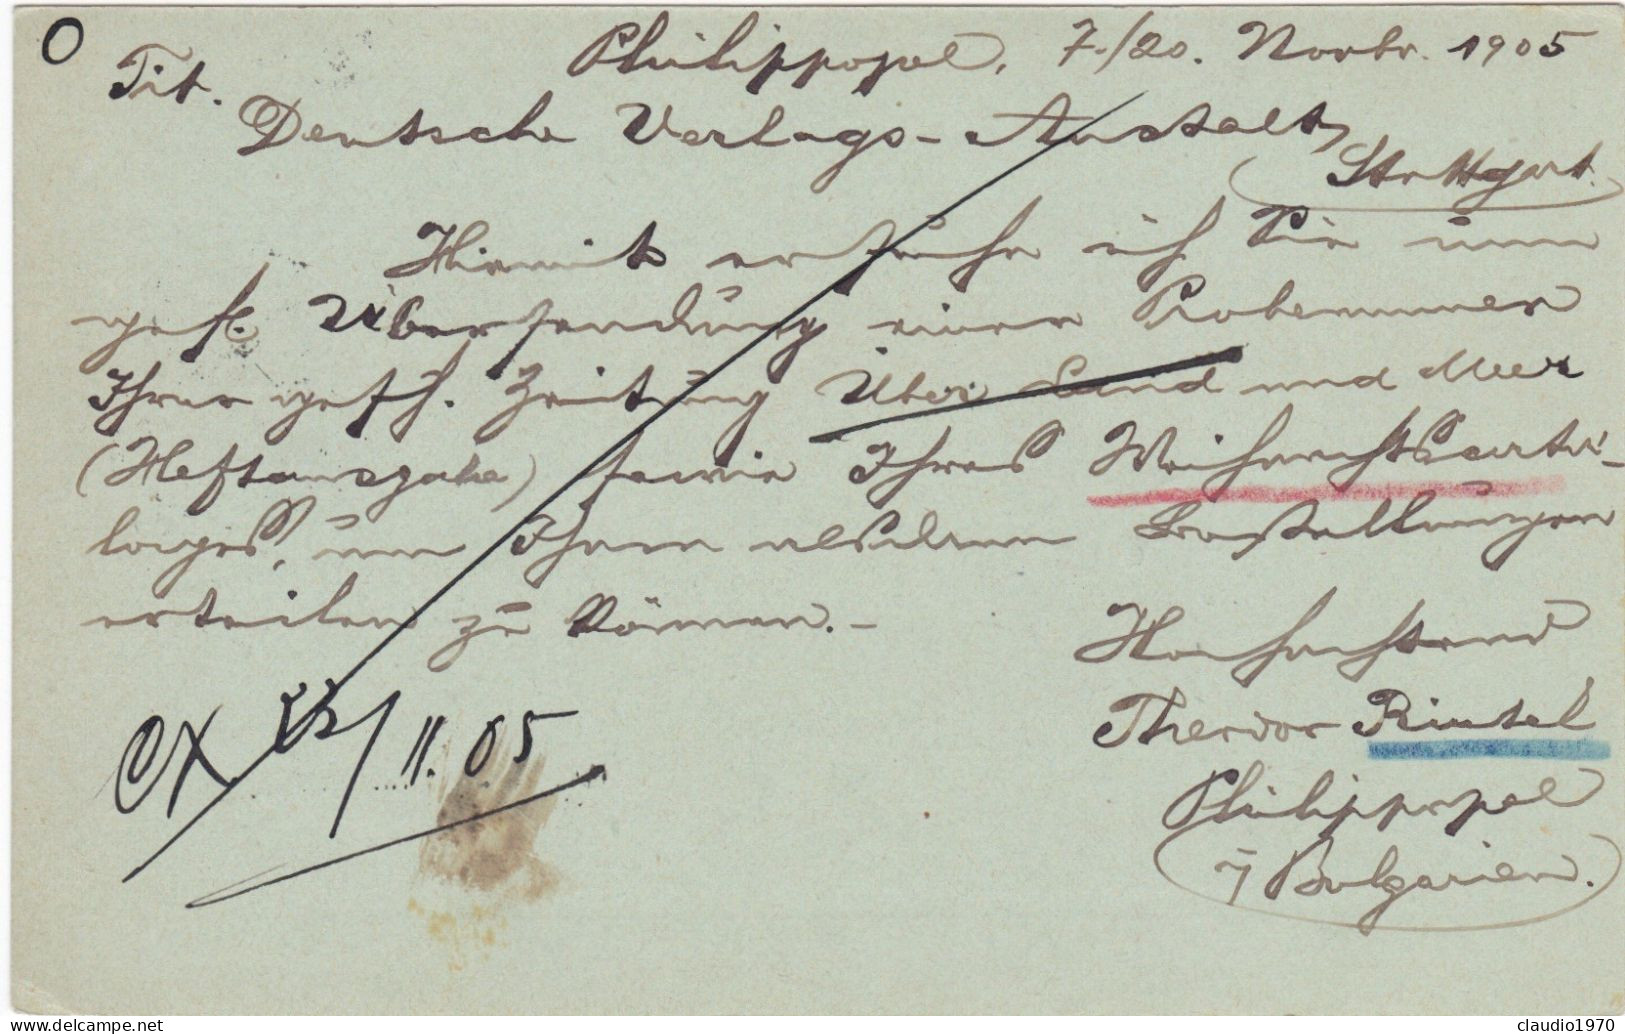 O
Philippopel, 7./20. Novbr. 1905
Tit.
Deutsche Verlags-Anstalt,
Stuttgart.
Hiermit ersuche ich Sie um
gefl. Übersendung einer Probenummer
Ihrer gesch. Zeitung Über Land und Meer
(Heftausgabe) sowie Ihres Weihnachtskata-
loges, um Ihnen alsdann Bestellungen
erteilen zu können.-
Hochachtend
Theodor Rintel
Philippopel
/ Bulgarien.
/11.05
www.delcampe.net
claudio1970